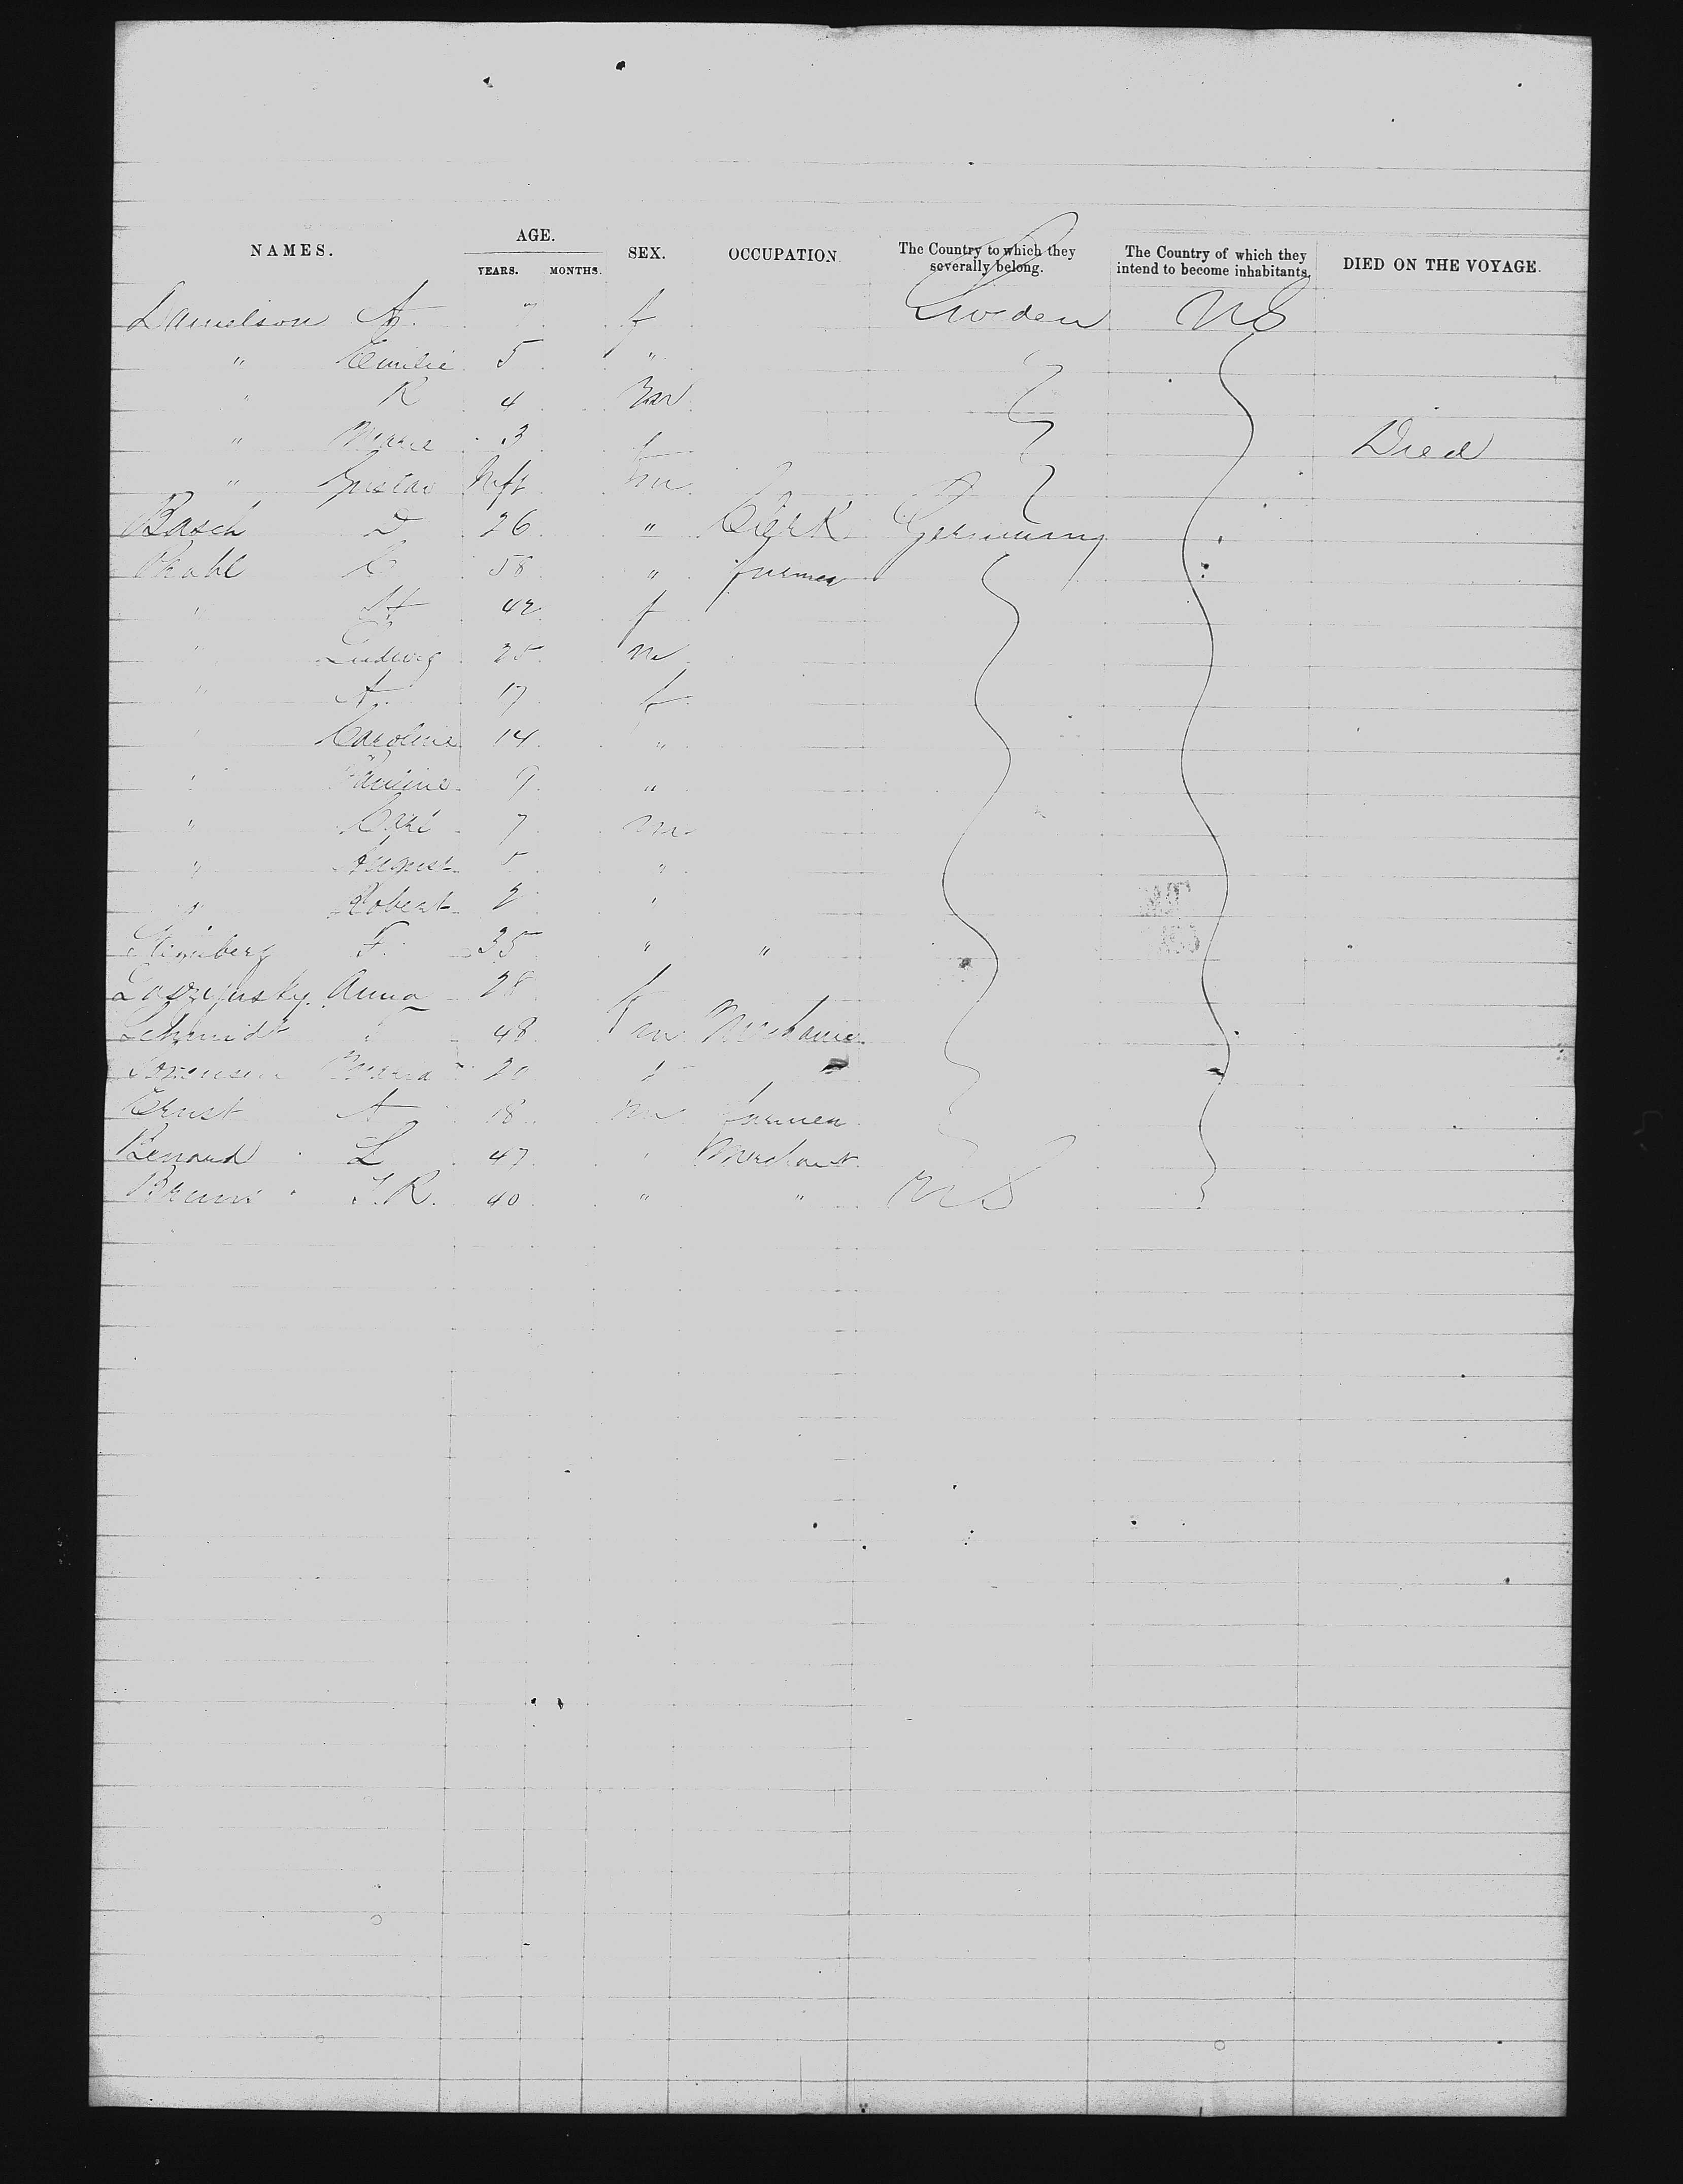 NAMES. AGE. SEX. OCCUPATION The Country to which they severally belong. The Country of which they intend to become inhabitants. DIED ON THE VOYAGE.
YEARS. MONTHS.
Danielson A. 7 f Sweden US
" Emilie 5 "
" R 4 m
" Marie 3 f Died
" Gustav Inft m
Basch D 26 " Clerk Germany
C 58 " farmer
" 42 f
" Ludwig 25 m
" A. 17 f
" Caroline 14 "
" Pauline 9 "
" Carl 7 m
" August 5 "
" Robert 2 "
F. 35 " "
Anna 28 f
Schmidt 48 m Mechanic
Maria 20 f
Ernst A 18 m farmer
L 47 " Merchant
Bruns J.R. 40 " " US